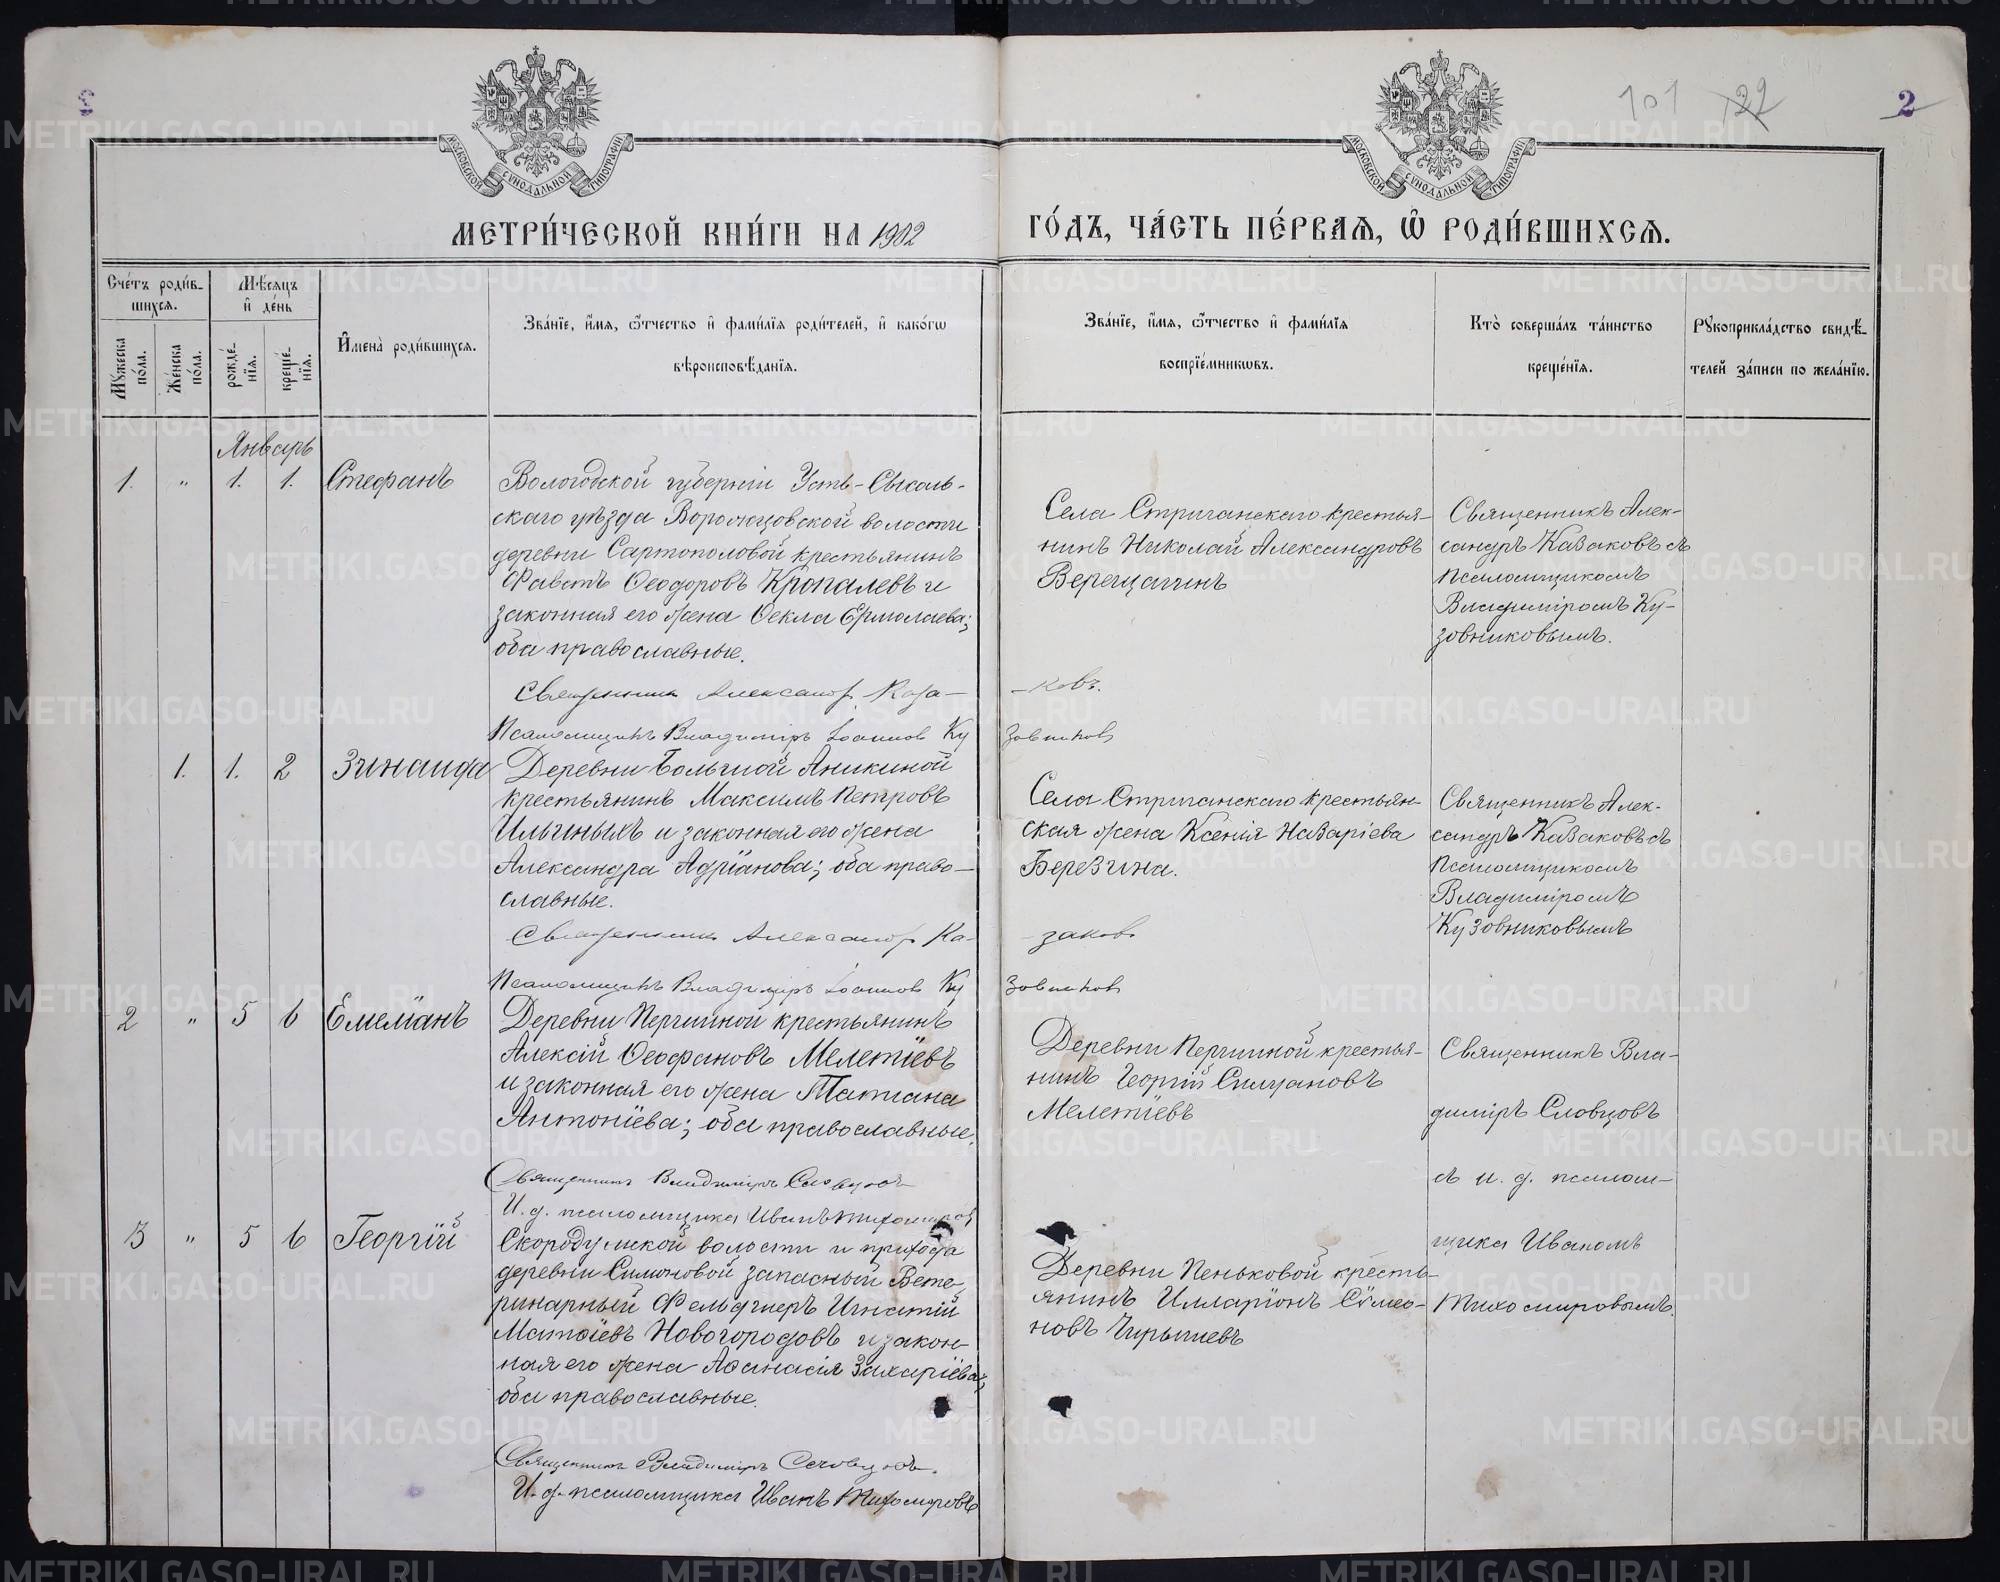 101 122 2
МОСКОВСКОЙ СѴНОДАЛЬНОЙ ТИПОГРАФІИ
МОСКОВСКОЙ СѴНОДАЛЬНОЙ ТИПОГРАФІИ
МЕТРИ́ЧЕСКОЙ КНИ́ГИ НА 1902
ГО́ДЪ, ЧА́СТЬ ПЕ́РВАѦ, Ѽ РОДИ́ВШИХСѦ.
Сче́тъ роди́в-
шихсѧ.
Мꙋ́жеска по́ла.
Же́нска по́ла.
Мѣ́сѧцъ
и҆ де́нь
рожде́-нїѧ.
креще́-нїѧ.
И҆мена̀ роди́вшихсѧ.
Зва́нїе, и҆́мѧ, ѻ҆́тчество и҆ фами́лїѧ роди́телей, и҆ како́гѡ
вѣроисповѣ́данїѧ.
Зва́нїе, и҆́мѧ, ѻ҆́тчество и҆ фами́лїѧ
воспрїе́мникѡвъ.
Кто̀ соверша́лъ та́инство
креще́нїѧ.
Рꙋкоприкла́дство свидѣ́-
телей за́писи по жела́нїю.
Январь
1. " 1. 1. Стефанъ
Вологодской губерніи Усть-Сысоль-
скаго уѣзда Воронцовской волости
деревни Сартополовой крестьянинъ
Фавстъ Ѳеодоровъ Кропалевъ и
законная его жена Ѳекла Ермолаева;
оба православные.
Села Стриганскаго крестья-
нинъ Николай Александровъ
Верещагинъ
Священникъ Алек-
сандръ Казаковъ съ
псаломщикомъ
Владиміромъ Ку-
зовниковымъ.
Священникъ Александр. Каза-
-ковъ.
Псаломщикъ Владиміръ Іоаннов Ку
зовников
1. 1. 2 Зинаида
Деревни Большой Аникиной
крестьянинъ Максимъ Петровъ
Ильиныхъ и законная его жена
Александра Адріанова; оба право-
славные.
Села Стриганскаго крестьян-
ская жена Ксенія Назаріева
Березина.
Священникъ Алек-
сандръ Казаковъ съ
псаломщикомъ
Владиміромъ
Кузовниковымъ
Священникъ Александр Ка-
заковъ
Псаломщикъ Владиміръ Іоаннов Ку
зовников
2 " 5 6 Емеліанъ
Деревни Першиной крестьянинъ
Алексій Ѳеофановъ Мелетіевъ
и законная его жена Татіана
Антоніева; оба православные.
Деревни Першиной крестья-
нинъ Георгій Силуановъ
Мелетіевъ
Священникъ Вла-
диміръ Словцовъ
съ и. д. псалом-
щика Иваномъ
Тихомировымъ.
Священникъ Владиміръ Словцовъ
И. д. псаломщика Иванъ Тихомиров
3 " 5 6 Георгій
Скородумской волости и прихода
деревни Симоновой запасный Вете-
ринарный Фельдшеръ Игнатій
Матѳіевъ Новогородовъ и закон-
ная его жена Аѳанасія Захаріева;
оба православные.
Деревни Пеньковой кресть-
янинъ Илларіонъ Сѵмео-
новъ Чирышевъ
Священникъ Владиміръ Словцовъ.
И. д. псаломщика Иванъ Тихомировъ
METRIKI.GASO-URAL.RU